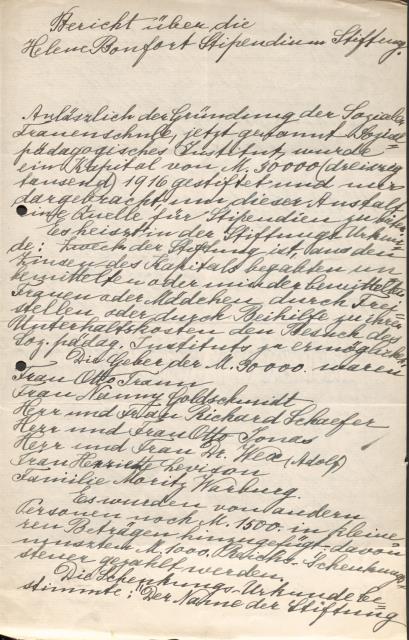 Bericht über die
Helene Bonfort Stipendium Stiftung.
Anläszlich der Gründung der Sozialen
Frauenschule, jetzt genannt Sozial=
pädagogisches Institut, wurde
ein Kapital von M. 30000 (dreiszig
tausend) 1916 gestiftet und mir
dargebracht um dieser Anstalt
eine Quelle für Stipendien zu
Es heiszt in der Stiftungs Urkun=
de: Zweck der Stiftung ist, aus den
Zinsen des Kapitals begabten un
bemittelten oder minderbemittelten
Frauen oder Mädchen durch Frei
stellen oder durch Beihilfe zu ihren
Unterhaltskosten den Besuch des
Soz. pädag. Instituts zu ermöglichen
Die Geber der M. 30000. waren
Frau Otto
Frau Nanny Goldschmidt
Herr und Frau Richard Schaefer
Herr und Frau Otto Jonas
Herr und Frau Dr. Wex (Adolf)
Frau Henriette Levison
Familie Moritz Warburg.
Es wurden von andern
Personen noch M. 1500. in kleine=
ren Beträgen hinzugefügt; davon
muszten M. 1000. Reichs-Schenkungs=
steuer gezahlt werden.
Die Schenkungs-Urkunde be=
stimmte: "Der Name der Stiftung